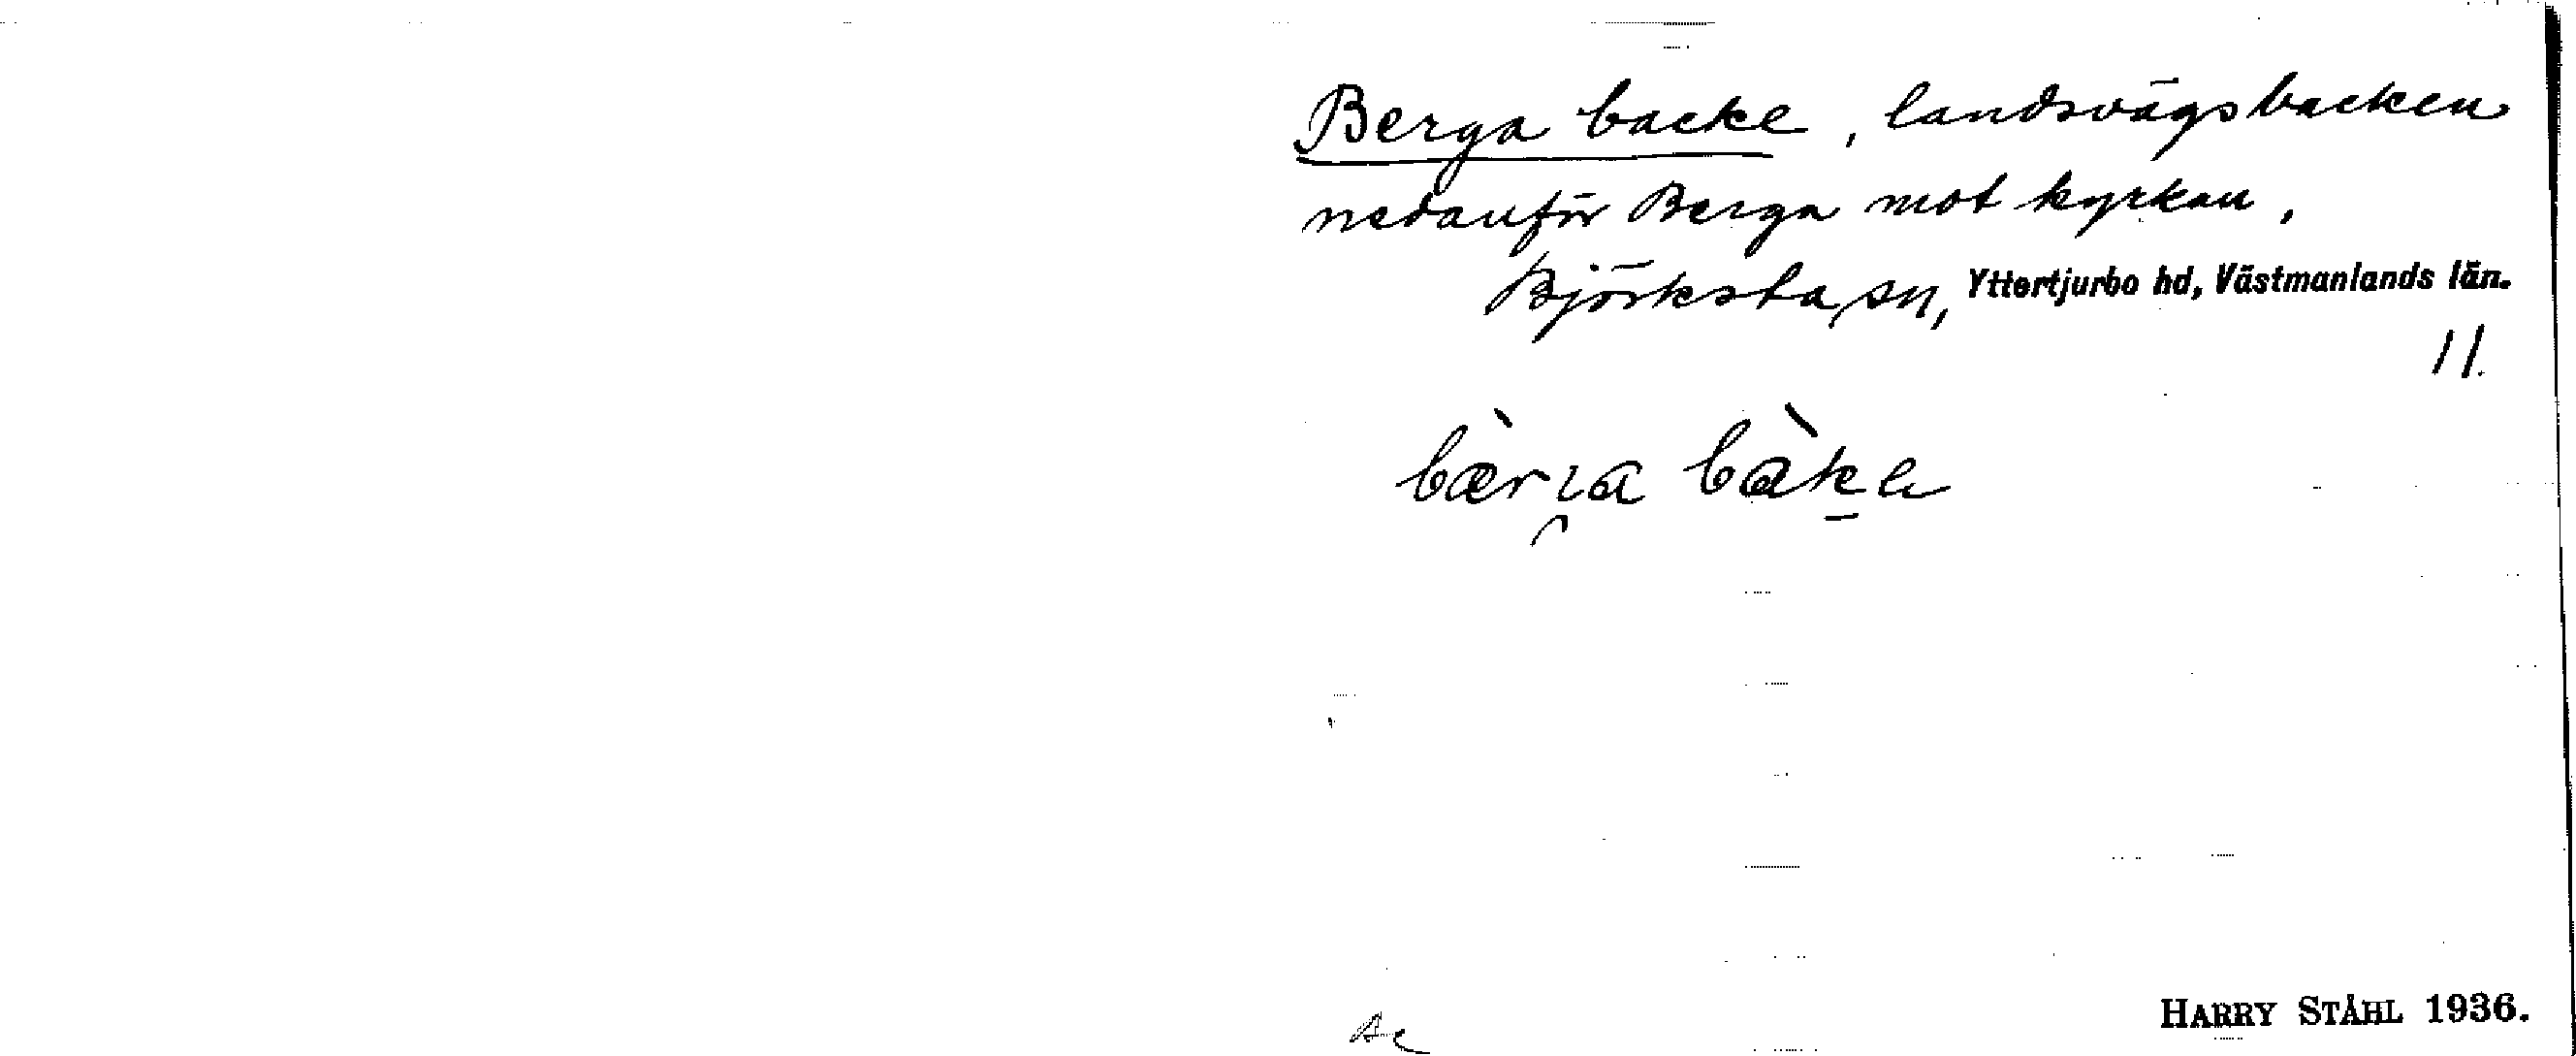 Berga backe, landsvägsbacken
nedanför Berga mot kyrkan,
Björksta sn, Yttertjurbo hd, Västmanlands län.
11.
HARRY STÅHL 1936.